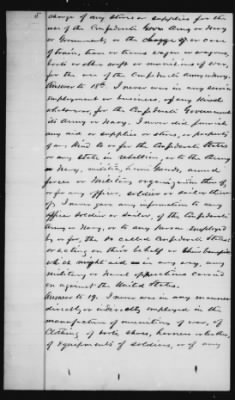 5
charge of any Stores or Supplies for the
use of the Confederate Govn Army or Navy
or Government, or the charge of or care
of train, team or teams wagon or wagons,
boats or other craft or munitions of war,
for the use of the Confederate Army or Navy.
Answer to 18th I never was in any service
employment or business, of any kind
whatsoever, for the Confederate Government
its Army or Navy. I never did furnish
any aid or supplies or stores, or property
of any kind to or for the Confederate States
or any state in rebellion, or to the Army
or Navy, militia, home Guards, armed
forces or Military organization thereof,
or for any officer, soldier or sailor there
of, I never gave any information to any
officer soldier or sailor, of the Confederate
Army or Navy, or to any person employed
by or for, the so called Confederate States
or acting on their behalf or their benefit
which might aid in any way, any
military or Naval operations carried
on against the United States.
Answer to 19. I never was in any manner
directly or indirectly employed in the
manufacture of munitions of war, of
Clothing of boots shoes, harness
of equipments of soldiers, or of any